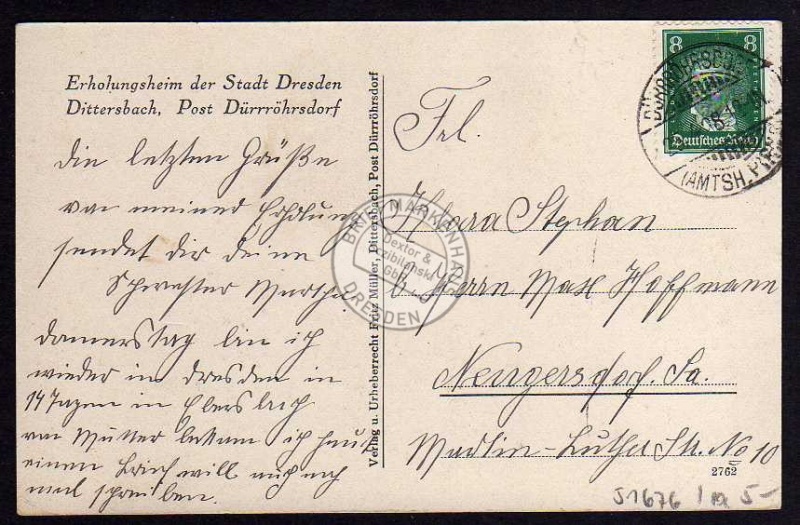 Erholungsheim der Stadt Dresden
Dittersbach, Post Dürrröhrsdorf
die letzten Grüße
von meiner Erholung
sendet dir deine
Schwester Martha
Donnerstag bin ich
wieder in Dresden in
14 Tagen in Ebersbach
von Mutter bekam ich heute
einen Brief will auch noch
mal schreiben.
Verlag u. Urheberrecht Fritz Müller, Dittersbach, Post Dürrröhrsdorf
Frl.
Klara Stephan
b. Herrn Max Hoffmann
Neugersdorf. Sa.
Martin-Luther Str. No 10
2762
8 8
Deutsches Reich
DÜRRRÖHRSDORF
(AMTSH. PIRNA)
BRIEFMARKENHAUS
Dextor &
GbR
DRESDEN
51676
5-